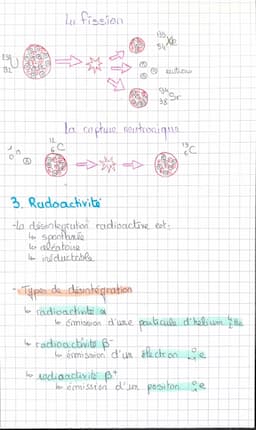 La fission
235
92 U
139
54 Xe
neutrons
94
38 Sr
la capture neutronique
1
0 n
12
6 C
13
6 C
3. Radoactivité
-la désintégration radioactive est:
↳ spontanée
↳ aléatoire
↳ inéluctable
- Types de désintégration
↳ radioactivité α
↳ émission d'une particule d'helium 4 2 He
↳ radioactivité β-
↳ émission d'un électron 0 -1 e
↳ radioactivité β+
↳ émission d'un positon 0 1 e